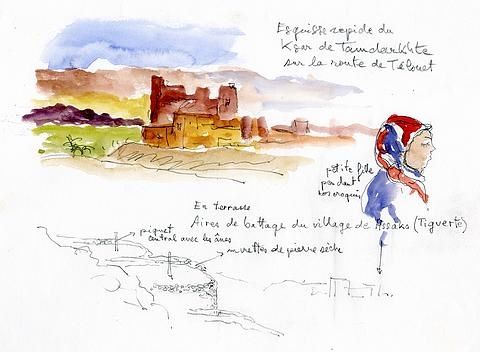 Esquisse rapide du
Ksar de Tamdarkhte
sur la route de Télouet
petite fille
pendant
nos croquis
En terrasse
Aires de battage du village de Assaks (Tiguerte)
piquet
central avec les ânes
murettes de pierre sèche